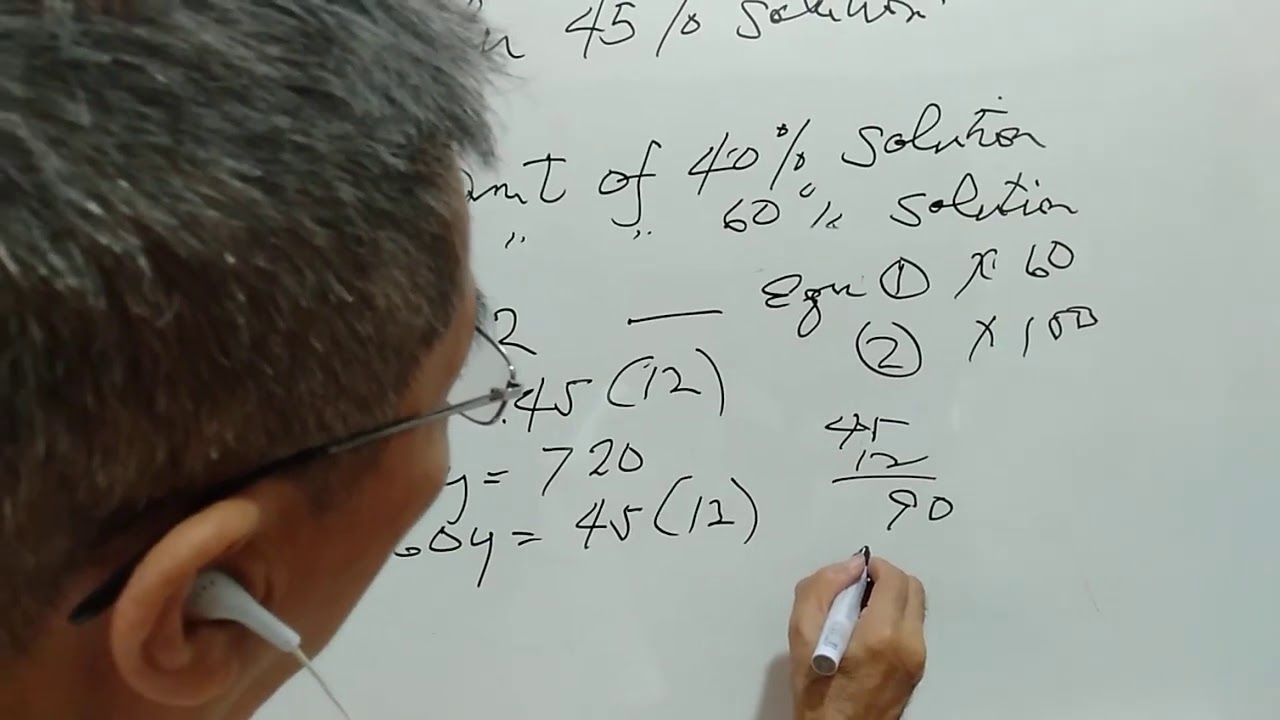 45% solution
amt of 40% solution
" " 60% solution
Eqn ① x 60
2 —
② x 100
.45 (12)
y = 720
60y = 45 (12)
45
12
90